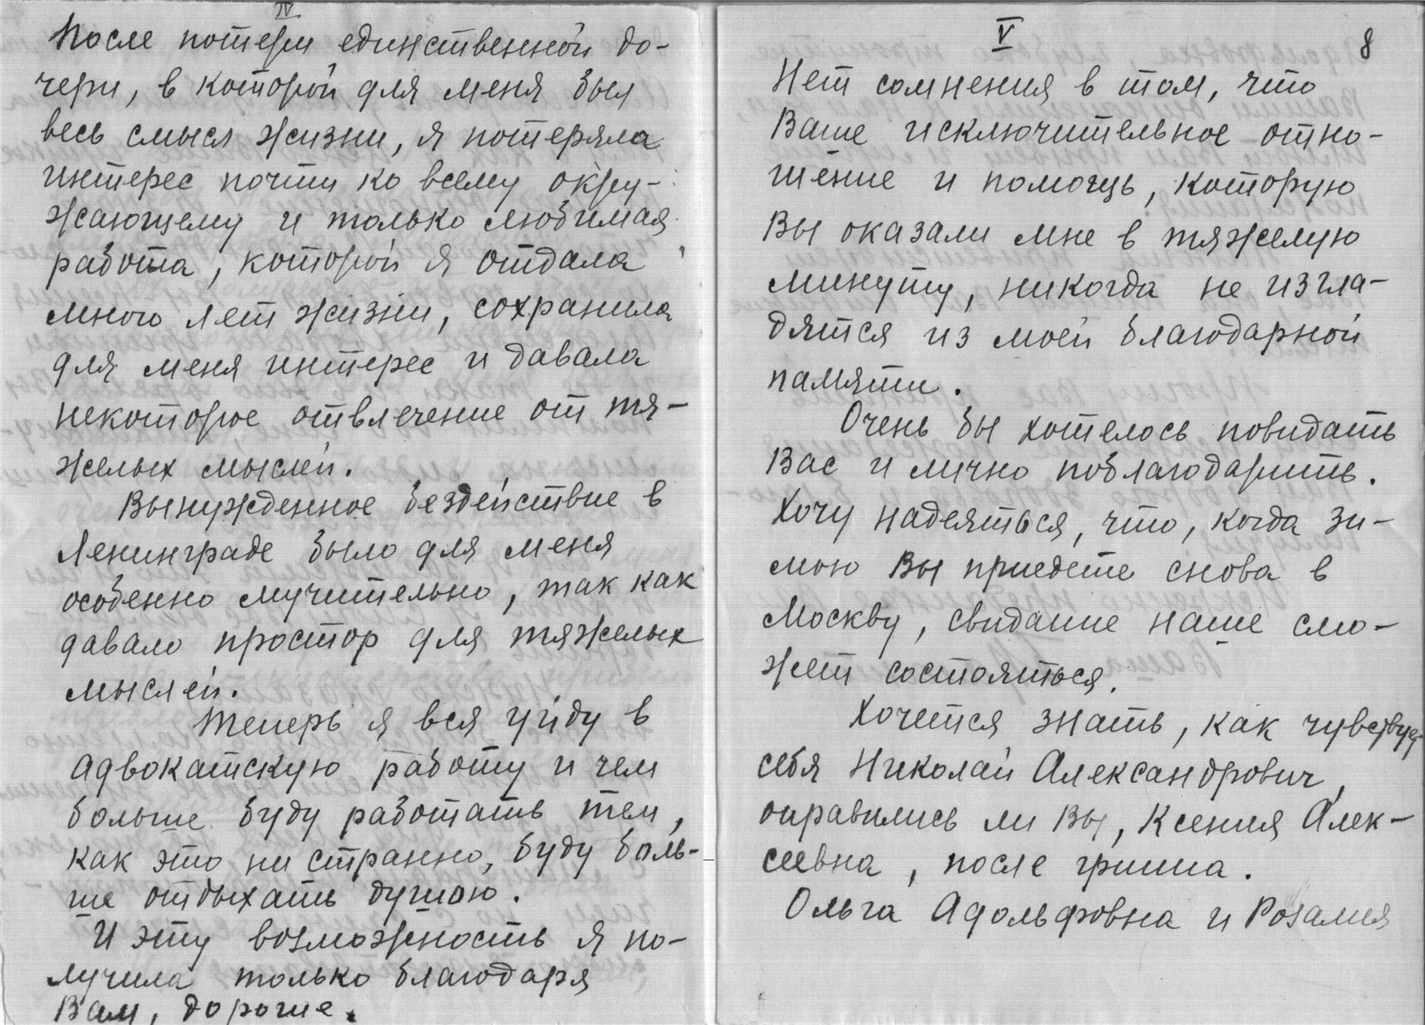 IV
После потери единственной до-
чери, в которой для меня был
весь смысл жизни, я потеряла
интерес почти ко всему окру-
жающему и только любимая
работа, которой я отдала
много лет жизни, сохранила
для меня интерес и давала
некоторое отвлечение от тя-
желых мыслей.
Вынужденное бездействие в
Ленинграде было для меня
особенно мучительно, так как
давало простор для тяжелых
мыслей.
Теперь я вся уйду в
адвокатскую работу и чем
больше буду работать тем,
как это ни странно, буду боль-
ше отдыхать душою.
И эту возможность я по-
лучила только благодаря
Вам, дорогие.
V
8
Нет сомнения в том, что
Ваше исключительное отно-
шение и помощь, которую
Вы оказали мне в тяжелую
минуту, никогда не изгла-
дятся из моей благодарной
памяти.
Очень бы хотелось повидать
Вас и лично поблагодарить.
Хочу надеяться, что, когда зи-
мою Вы приедете снова в
Москву, свидание наше смо-
жет состояться.
Хочется знать, как чувствует
себя Николай Александрович,
оправились ли Вы, Ксения Алек-
сеевна, после гриппа.
Ольга Адольфовна и Розалия